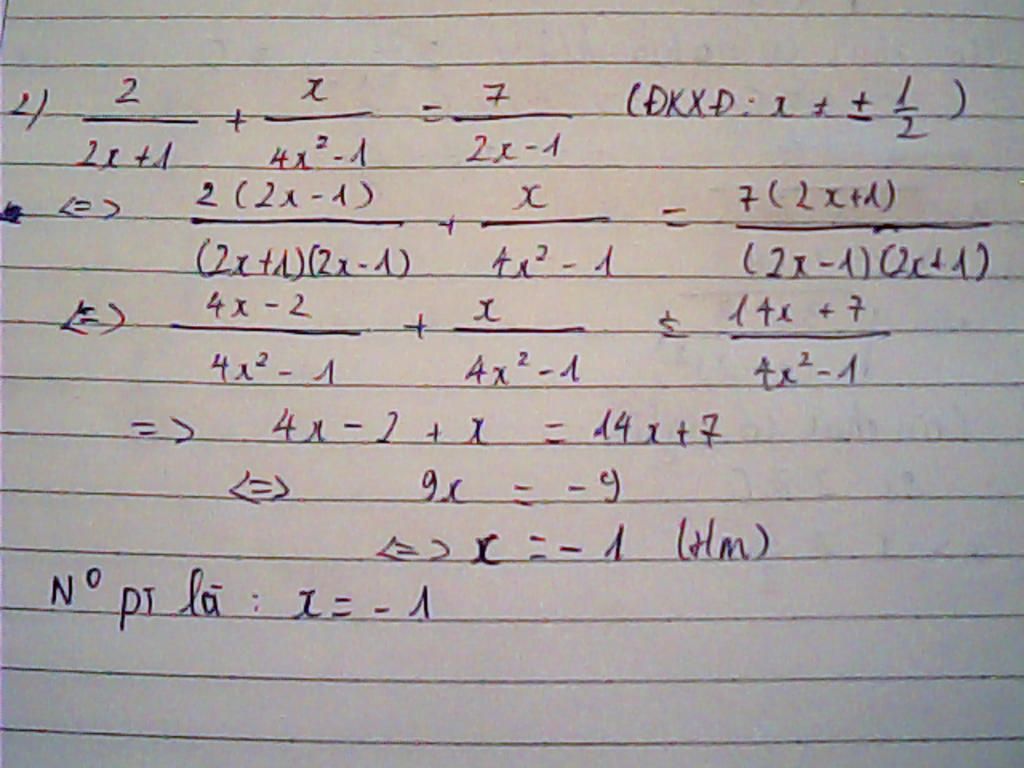 2) 2/(2x+1) + x/(4x²-1) = 7/(2x-1) (ĐKXĐ: x ≠ ± 1/2)
<=> 2(2x-1)/((2x+1)(2x-1)) + x/(4x²-1) = 7(2x+1)/((2x-1)(2x+1))
<=> (4x-2)/(4x²-1) + x/(4x²-1) = (14x+7)/(4x²-1)
=> 4x-2+x = 14x+7
<=> 9x = -9
<=> x = -1 (t/m)
N⁰ pt là : x = -1